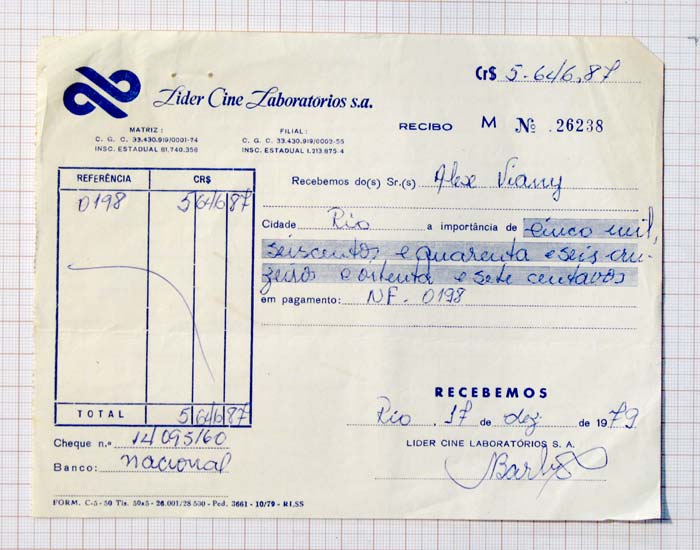 Cr$ 5.646,87
Líder Cine Laboratórios s.a.
MATRIZ:
C. G. C. 33.430.919/0001-74
INSC. ESTADUAL 81.740.358
FILIAL:
C. G. C. 33.430.919/0002-55
INSC. ESTADUAL 1.213.875.4
RECIBO M Nº 26238
REFERÊNCIA CR$
0198 5 646 87
TOTAL 5 646 87
Cheque n.º 14/095160
Banco: nacional
Recebemos do(s) Sr.(s) Alex Viany
Cidade Rio a importância de cinco mil,
seiscentos e quarenta e seis cru-
zeiros e oitenta e sete centavos
em pagamento: NF. 0198
RECEBEMOS
Rio, 17 de dez de 1979
LIDER CINE LABORATÓRIOS S. A.
FORM. C-5 - 50 Tls. 50x5 - 26.001/28.500 - Ped. 3661 - 10/79 - RLSS